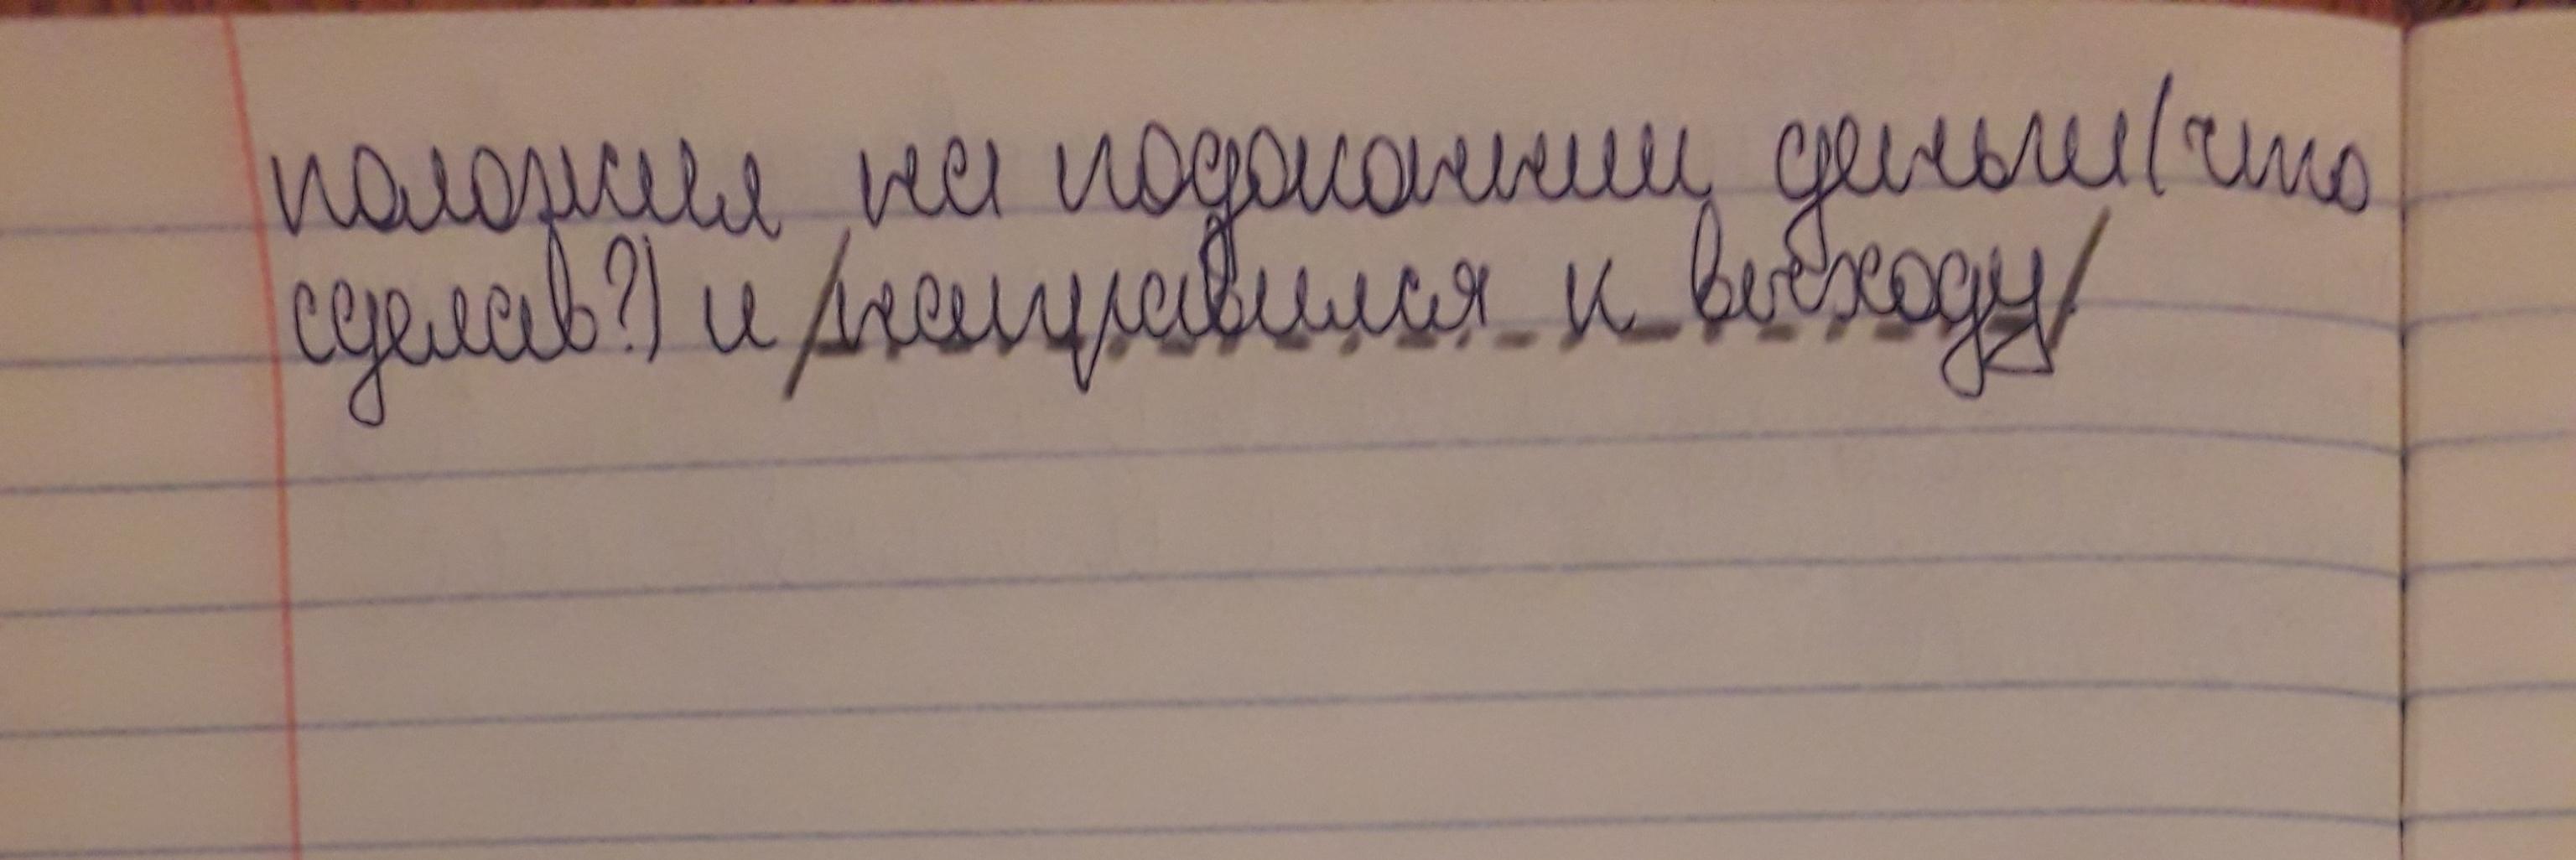 положил на подоконник деньги (что
сделав?) и /направился к выходу/